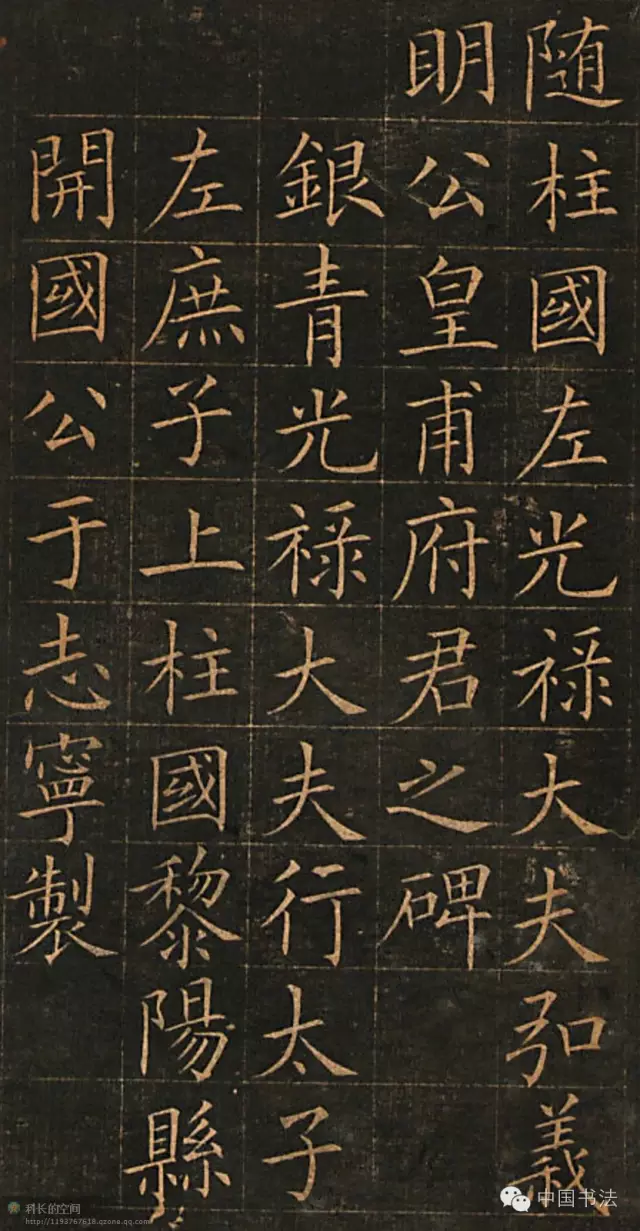 随柱國左光禄大夫弘義
明公皇甫府君之碑
銀青光禄大夫行太子
左庶子上柱國黎陽縣
開國公于志寧製
科长的空间
http://1193767618.qzone.qq.com/
中国书法